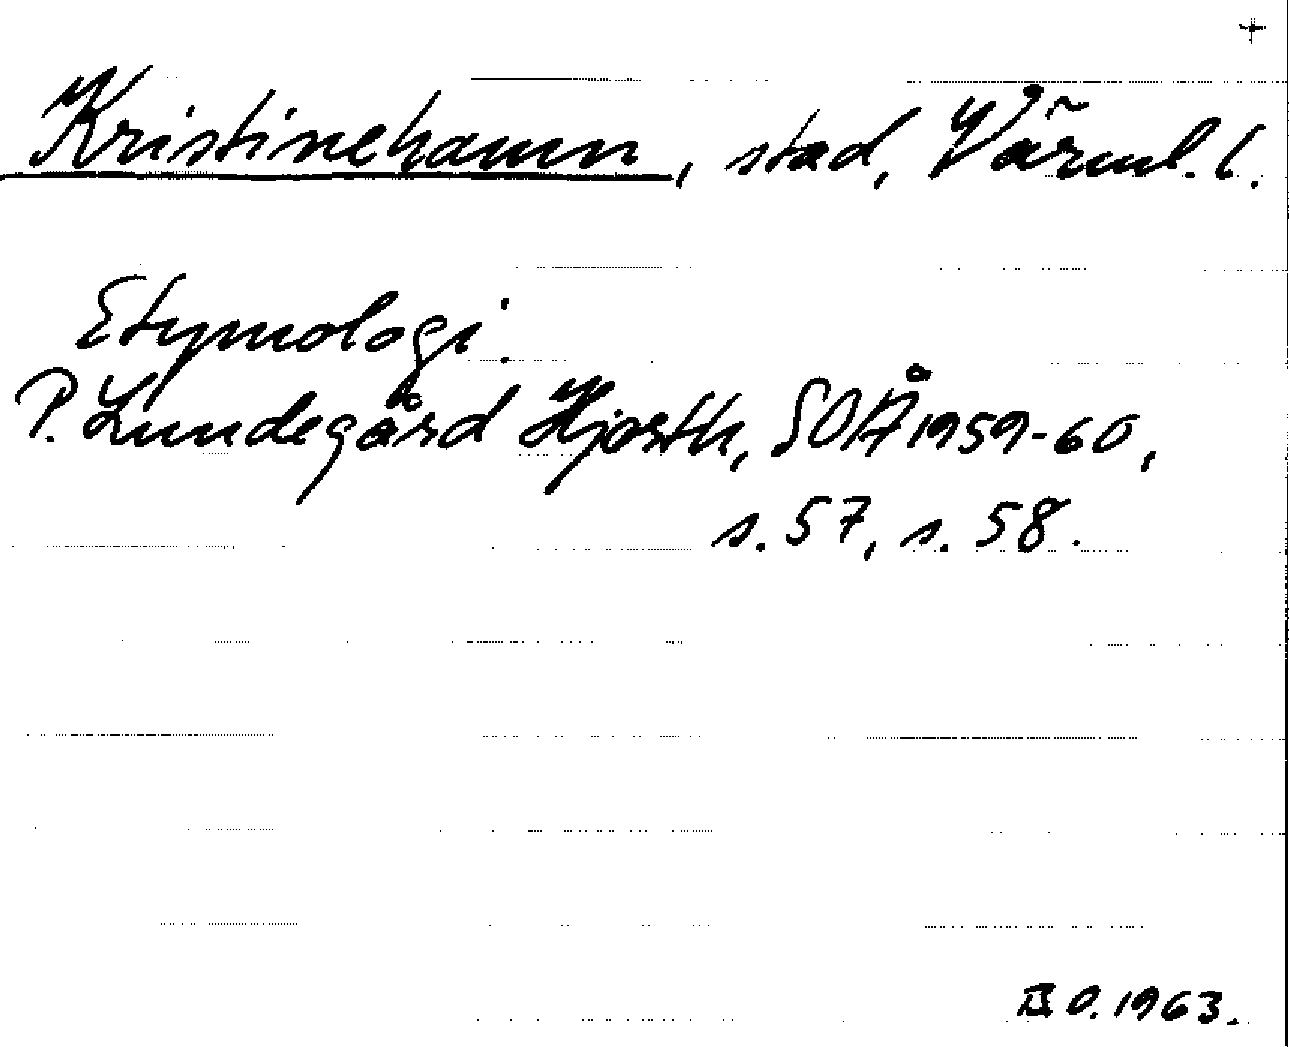 +
Kristinehamn, stad, Värml. l.
Etymologi.
P. Lundegård Hjorth, SOÅ 1959-60,
s. 57, s. 58.
O. 1963.